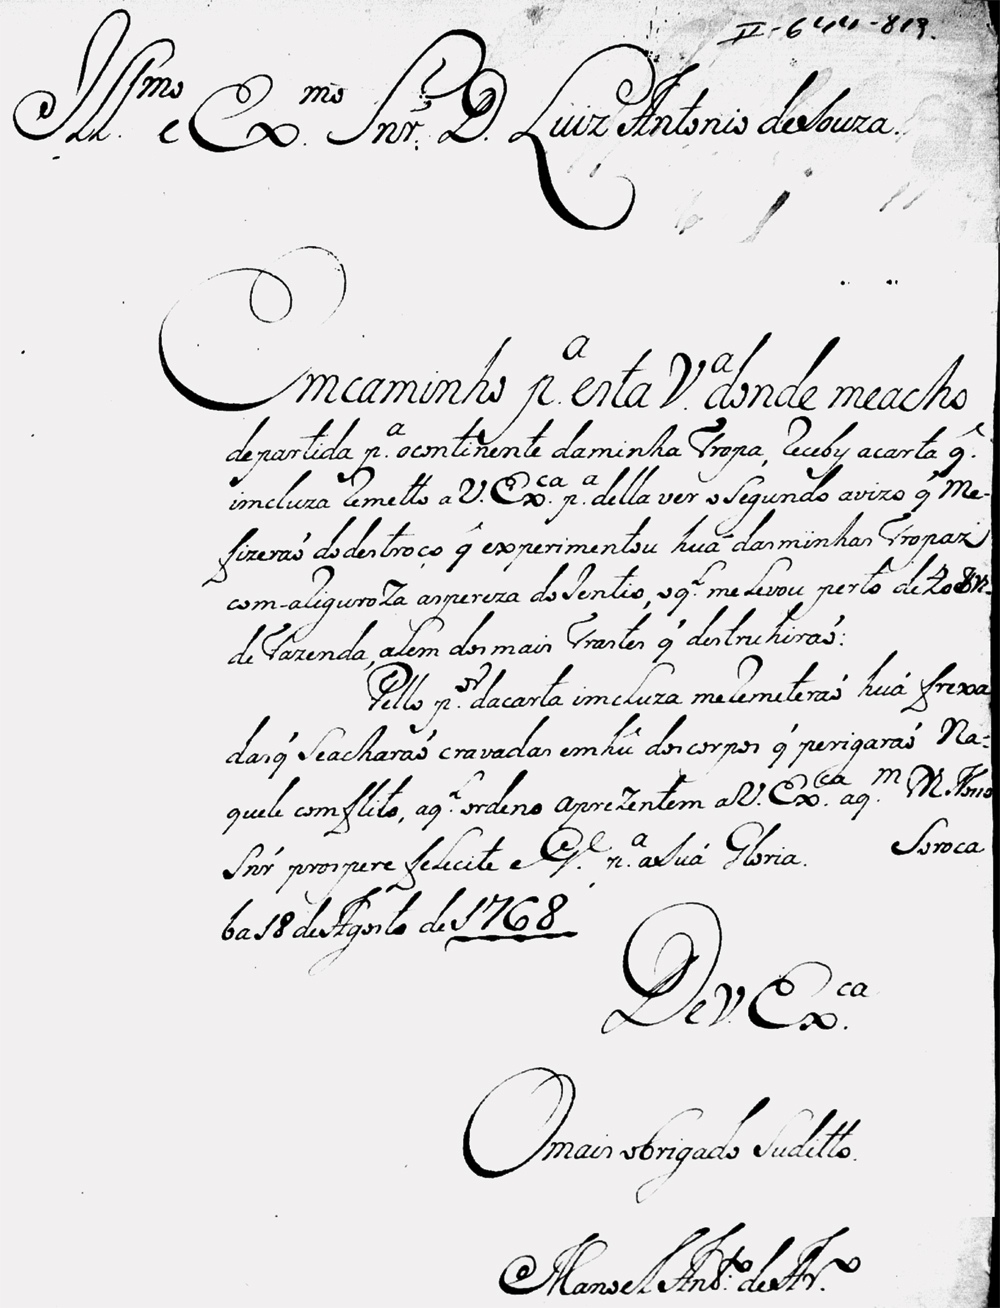 II-644-813.
Ill.mo e Ex.mo Snr. D. Luiz Antonio deSouza.
Emcaminho p.a esta V.a donde meacho
departida p.a ocontinente daminha Tropa, Receby acarta q.
imcluza Remetto a V. Ex.ca p.a della ver o Segundo avizo q̃ Me-
fizerаõ dodestroço q̃ experimentou huã dasminhas Tropaz
com aRiguroza aspereza doGentio, oq.l melevou perto de
de Fazenda, alem dosmais Trastes q̃ destruhiraõ:
Pello p.or dacarta imcluza meRemeteraõ huá frexa
dasq̃ Seacharaõ cravadas emhũ doscorpos q̃ perigaraõ Na-
quele comflito, aq.l ordeno aprezentem aV. Ex.ca aq.m
Snr prospere felecite e G.e p.a aSuá Gloria. Soroca
ba 18 de Agosto de 1768
DeV. Ex.ca
Omais obrigado Suditto.
Manoel Ant.o de Ar.o